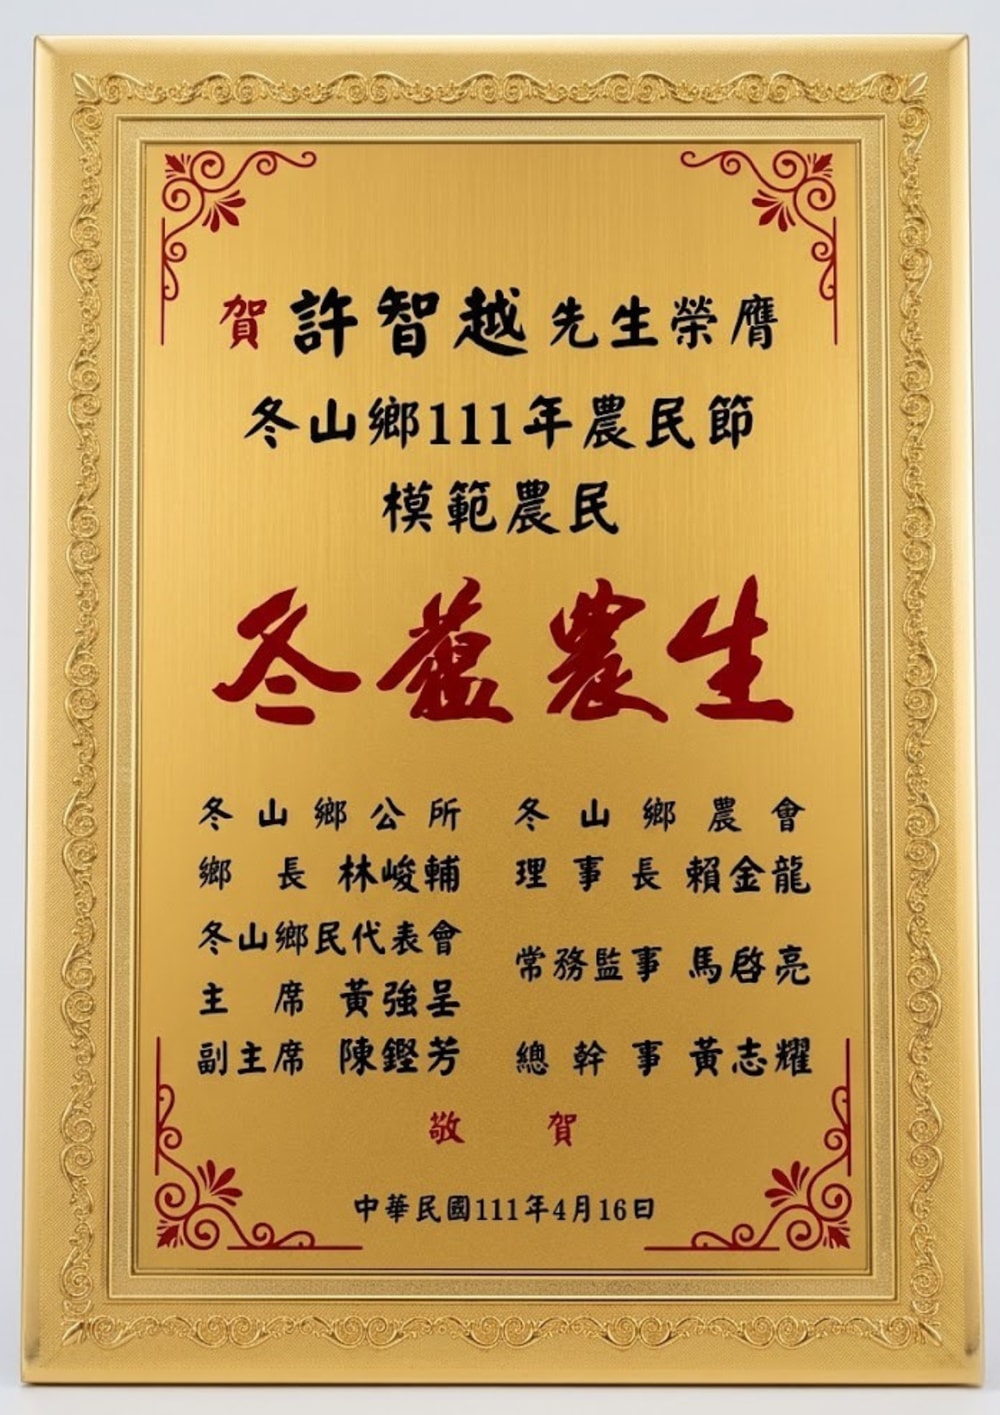 賀 許智越 先生榮膺
冬山鄉111年農民節
模範農民
冬 農生
冬山鄉公所
鄉長 林峻輔
冬山鄉民代表會
主席 黃強呈
副主席 陳鏗芳
冬山鄉農會
理事長 賴金龍
常務監事 馬啓亮
總幹事 黃志耀
敬賀
中華民國111年4月16日